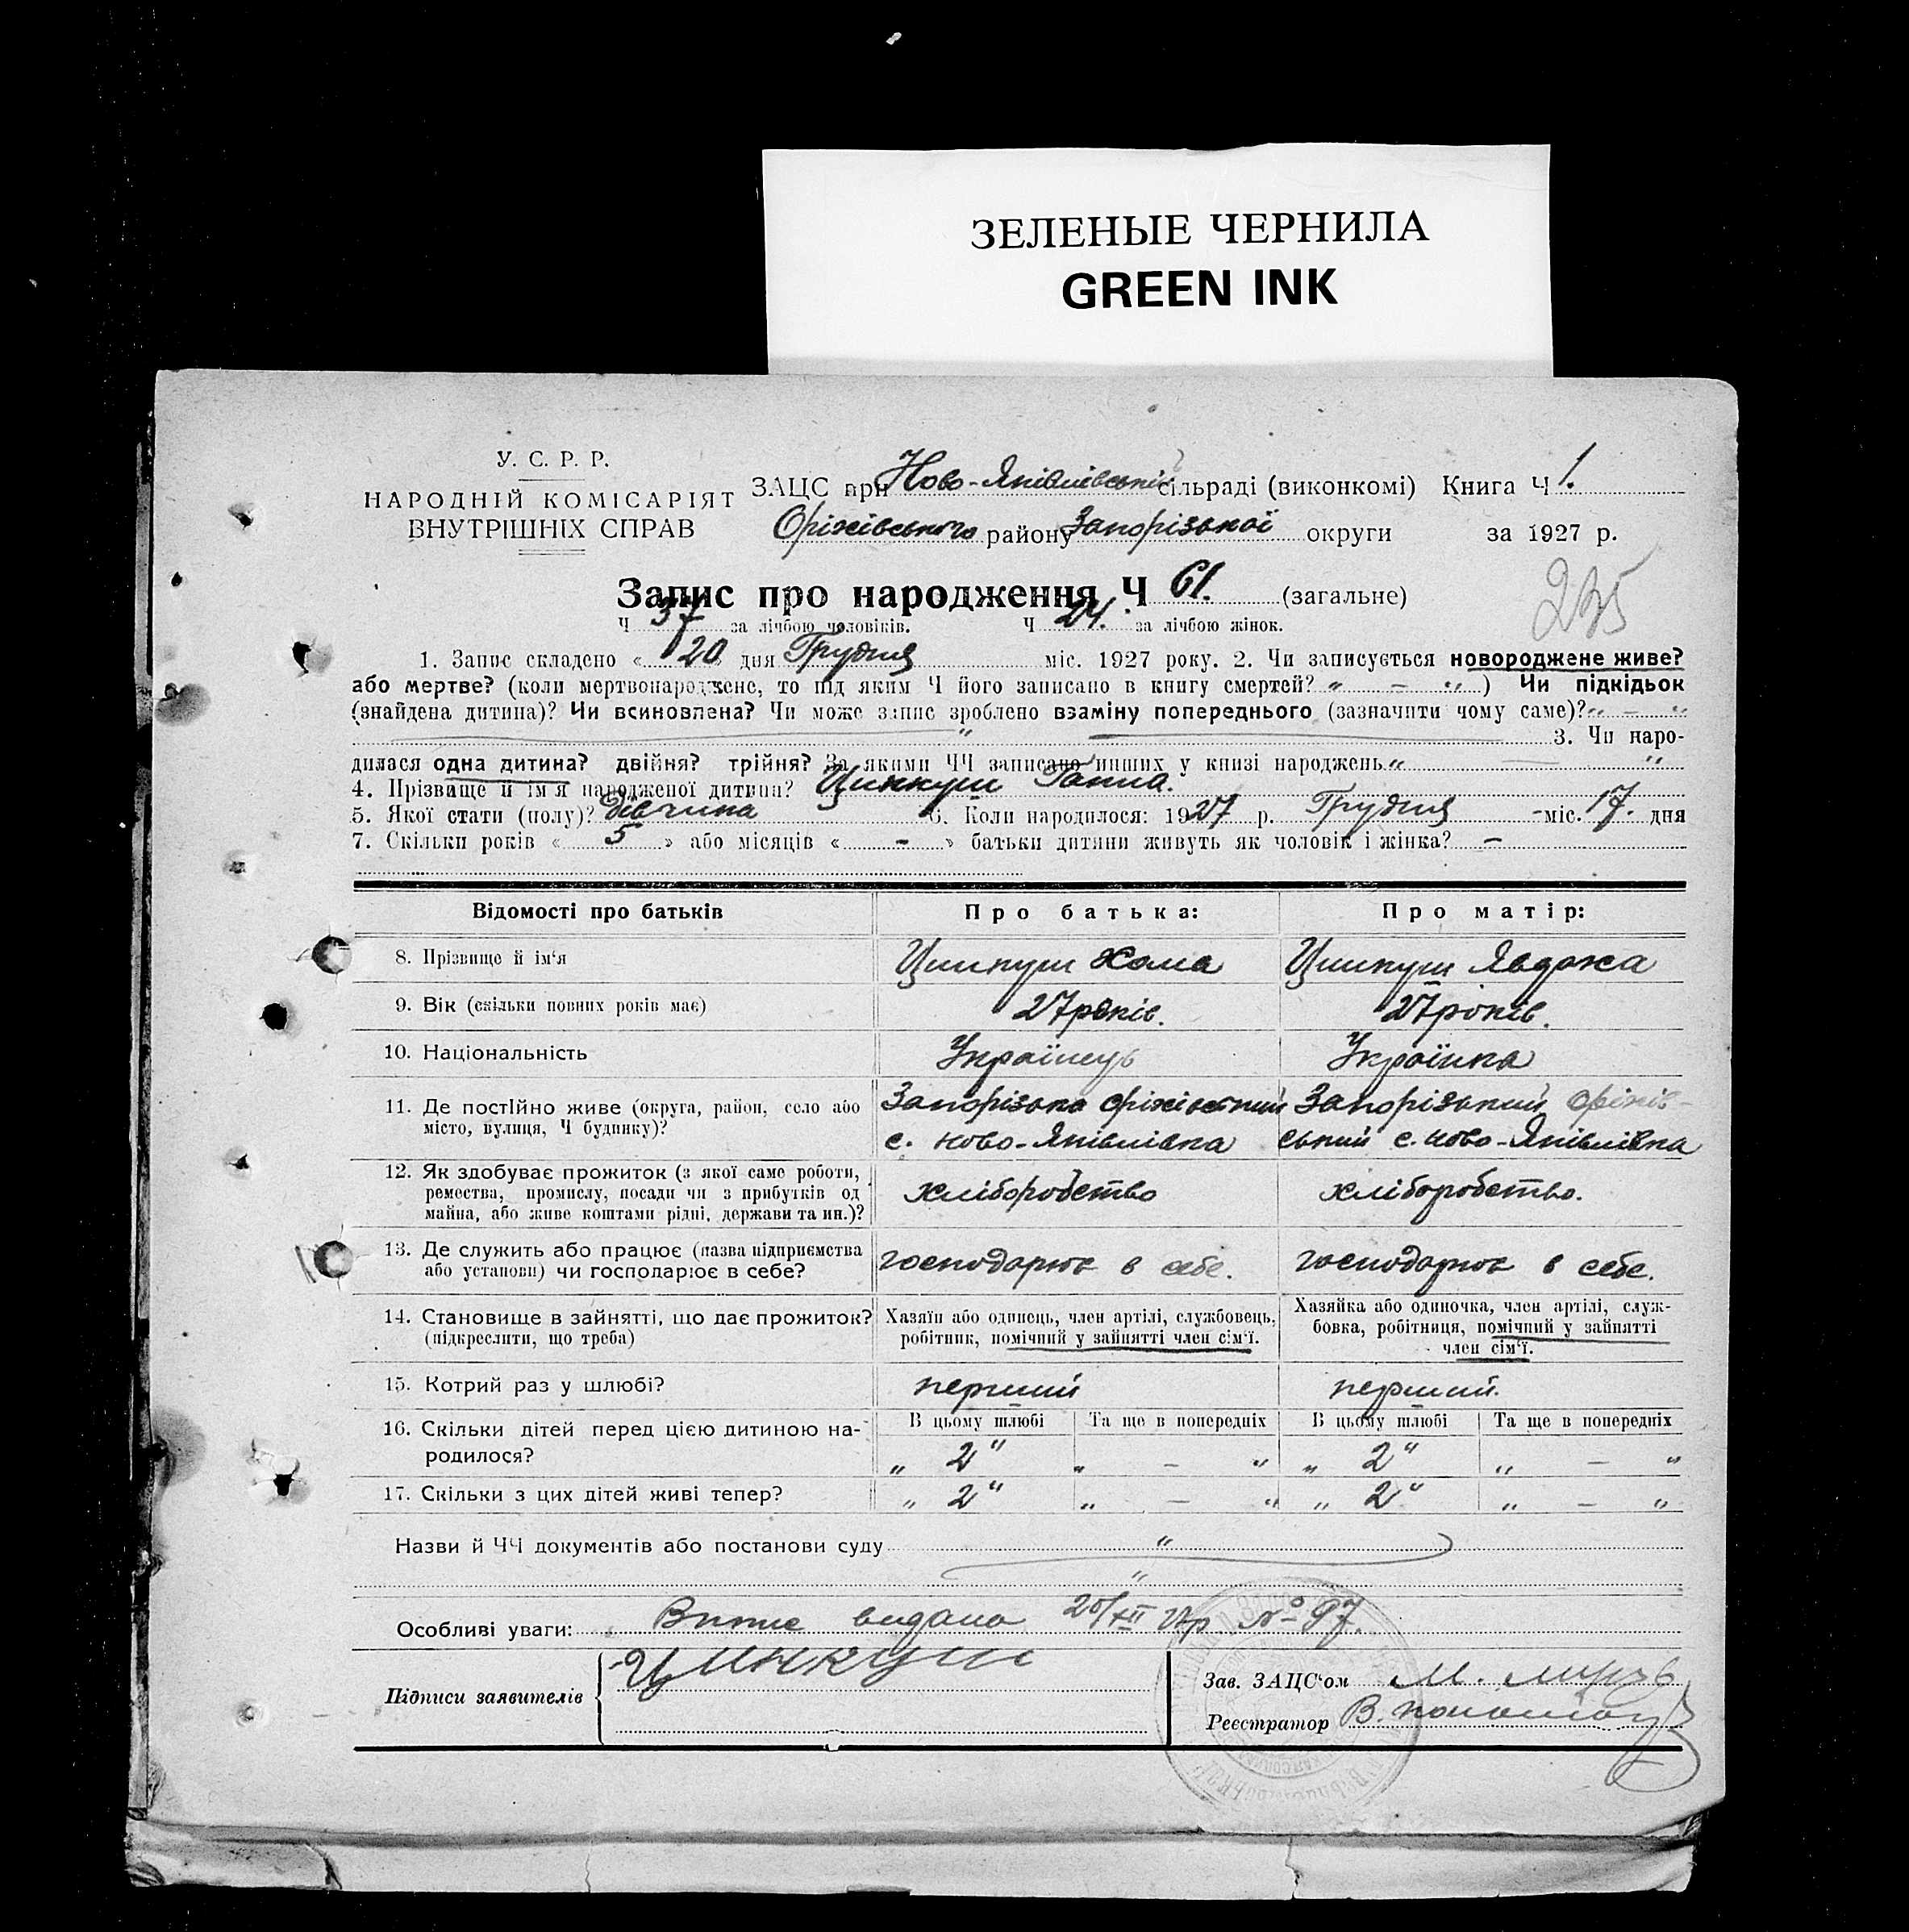 ЗЕЛЕНЫЕ ЧЕРНИЛА
GREEN INK
У. С. Р. Р.
НАРОДНІЙ КОМІСАРІЯТ
ВНУТРІШНІХ СПРАВ
ЗАЦС при Ново-Яківлівській сільраді (виконкомі) Книга Ч 1.
Оріхівського району Запорізької округи за 1927 р.
Запис про народження Ч 61. (загальне)
235
Ч 37 за лічбою чоловіків. Ч 24. за лічбою жінок.
1. Запис складено « 20 » дня Грудня міс. 1927 року. 2. Чи записується новороджене живе?
або мертве? (коли мертвонароджене, то під яким Ч його записано в книгу смертей? „ — “) Чи підкідьок
(знайдена дитина)? Чи всиновлена? Чи може запис зроблено взаміну попереднього (зазначити чому саме)? „ — “
„ 3. Чи наро-
дилася одна дитина? двійня? трійня? За якими ЧЧ записано инших у книзі народжень „ — “
4. Прізвище й ім'я народженої дитини? Цинкуш Ганна.
5. Якої стати (полу)? Дівчина 6. Коли народилося: 1927 р. Грудня - міс. 17. дня
7. Скільки років « 5 » або місяців « - » батьки дитини живуть як чоловік і жінка? —
Відомості про батьків Про батька: Про матір:
8. Прізвище й ім'я Цинкуш Хома Цинкуш Явдоха
9. Вік (скільки повних років має) 27 років. 27 років.
10. Національність Українець Українка
11. Де постійно живе (округа, район, село або Запорізька Оріхівський Запорізький Оріхів-
місто, вулиця, Ч будинку)? с. Ново-Яківлівка ський с. Ново-Яківлівка
12. Як здобуває прожиток (з якої саме роботи,
ремества, промислу, посади чи з прибутків од хліборобство хліборобство.
майна, або живе коштами рідні, держави та ин.)?
13. Де служить або працює (назва підприємства
або установи) чи господарює в себе? господарює в себе. господарює в себе.
14. Становище в зайнятті, що дає прожиток? Хазяїн або одинець, член артілі, службовець, Хазяйка або одиночка, член артілі, служ-
(підкреслити, що треба) робітник, помічний у зайнятті член сім'ї. бовка, робітниця, помічний у зайнятті
член сім'ї.
15. Котрий раз у шлюбі? перший перший.
16. Скільки дітей перед цією дитиною на- В цьому шлюбі Та ще в попередніх В цьому шлюбі Та ще в попередніх
родилося? „ 2 “ „ — “ „ 2 “ „ — “
17. Скільки з цих дітей живі тепер? „ 2 “ „ — “ „ 2 “ „ — “
Назви й ЧЧ документів або постанови суду „
„
Особливі уваги: Випис видано 20/XII 27р № 97.
Підписи заявителів Цинкуш
Зав. ЗАЦС'ом М.
Реєстратор В.